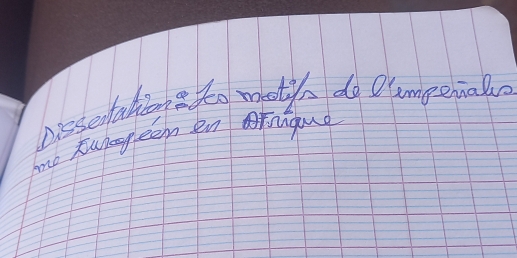 Dissertation : Les motifs de l'emperialis
me Européen en Afrique